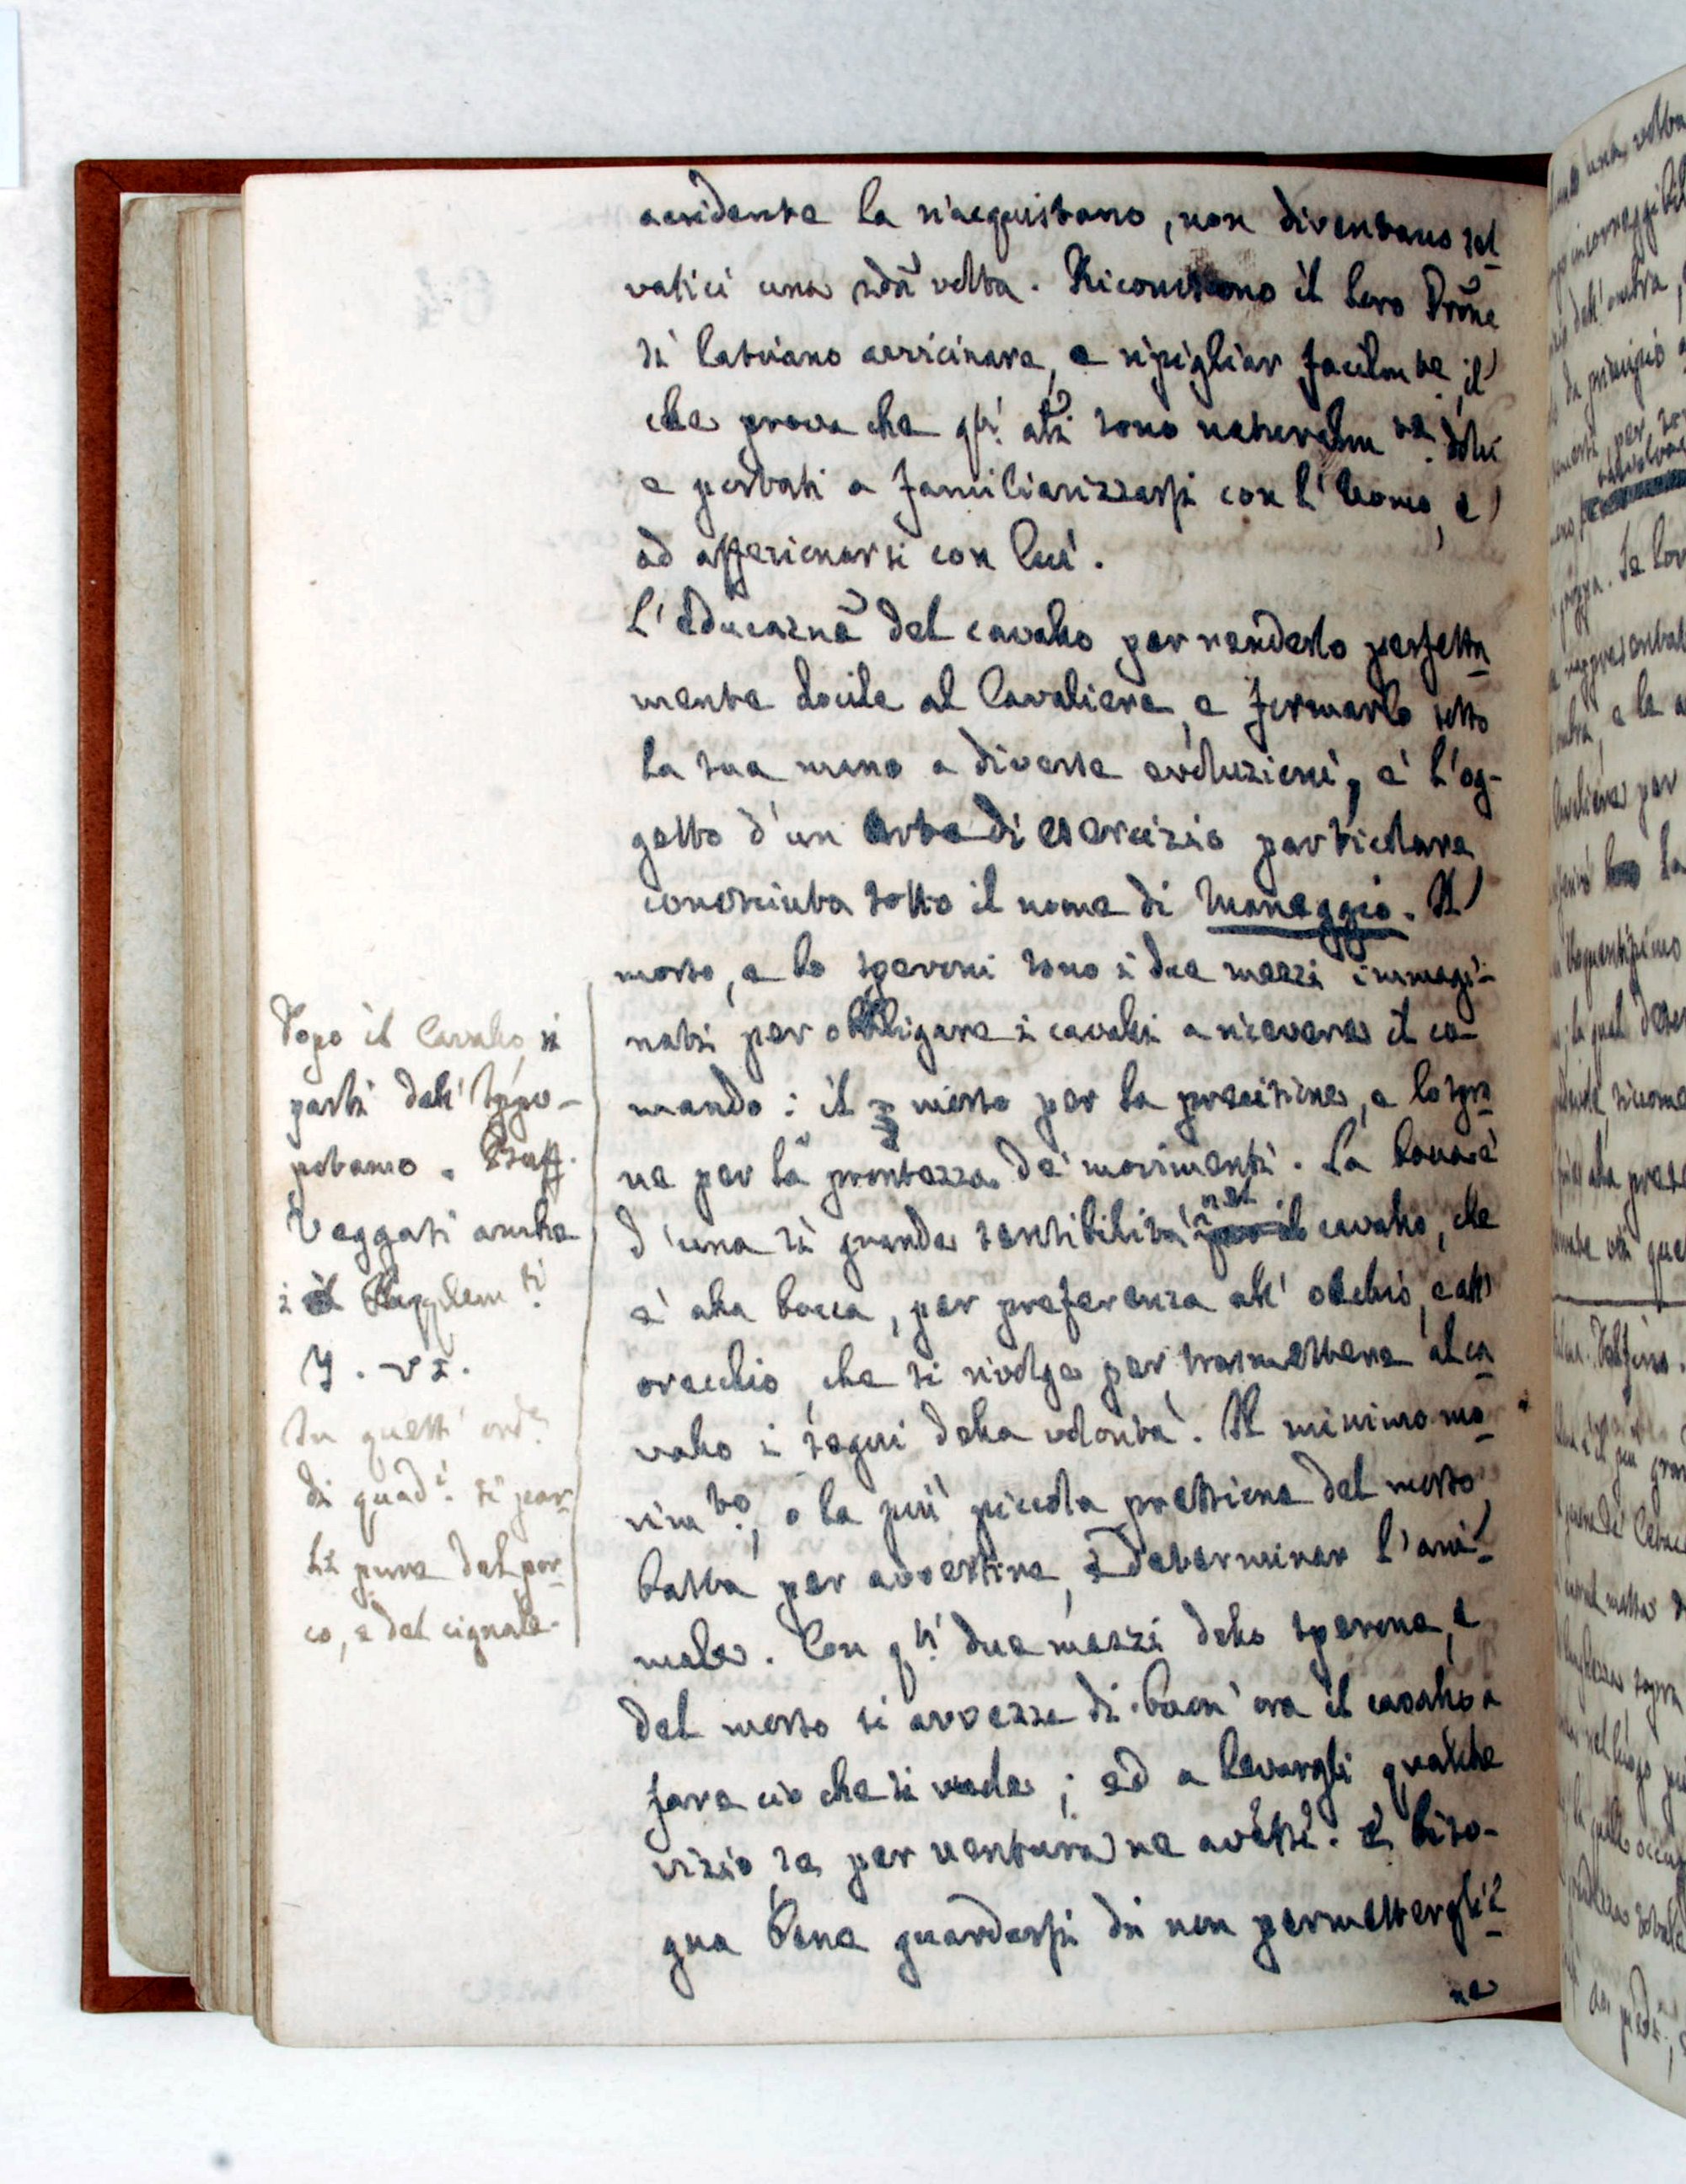 accidente la riacquistano, non diventano sel-
vatici una 2da volta. Riconoscono il loro Prõne
si lasciano avvicinare, e ripigliar facilmte, il
che prova che qti ali sono naturalmte dolci
e portati a familiarizzarsi con l'Uomo, e
ad affezionarsi con lui.
L'Educaznẽ del cavallo per renderlo perfetta-
mente docile al Cavaliere, e formarlo sotto
la sua mano a diverse evoluzioni, e' l'og-
getto d'un Arte di esercizio particolare
conosciuta sotto il nome di Maneggio. Il
morso, e lo speroni sono i due mezzi immagi-
nati per obbligare i cavalli a ricevere il co-
mando: il morso per la precisione, e lo spro-
ne per la prontezza de' movimenti. La bocca è
d'una sì grande sensibilità nel per il cavallo, che
e' alla bocca, per preferenza all' occhio, e all'
orecchio, che si rivolge per trasmettere al ca-
vallo i segni della volontà. Il minimo mo-
vimto, o la più piccola pressione del morso,
basta per avvertire, e determinar l'ani-
male. Con qti due mezzi dello sperone, e
del morso si avvezza di buon' ora il cavallo a
fare ciò che si vuole; ed a levargli qualche
vizio se per ventura ne avesse. E' biso-
gna bene guardarsi di non permettergli-
ne
Dopo il Cavallo, si
parli dell' Ippo-
potamo. Buff.
Veggasi anche
i il Supplemti
T. VI.
In quest' orde
di quadi si par-
li pure del por-
co, e del cignale.